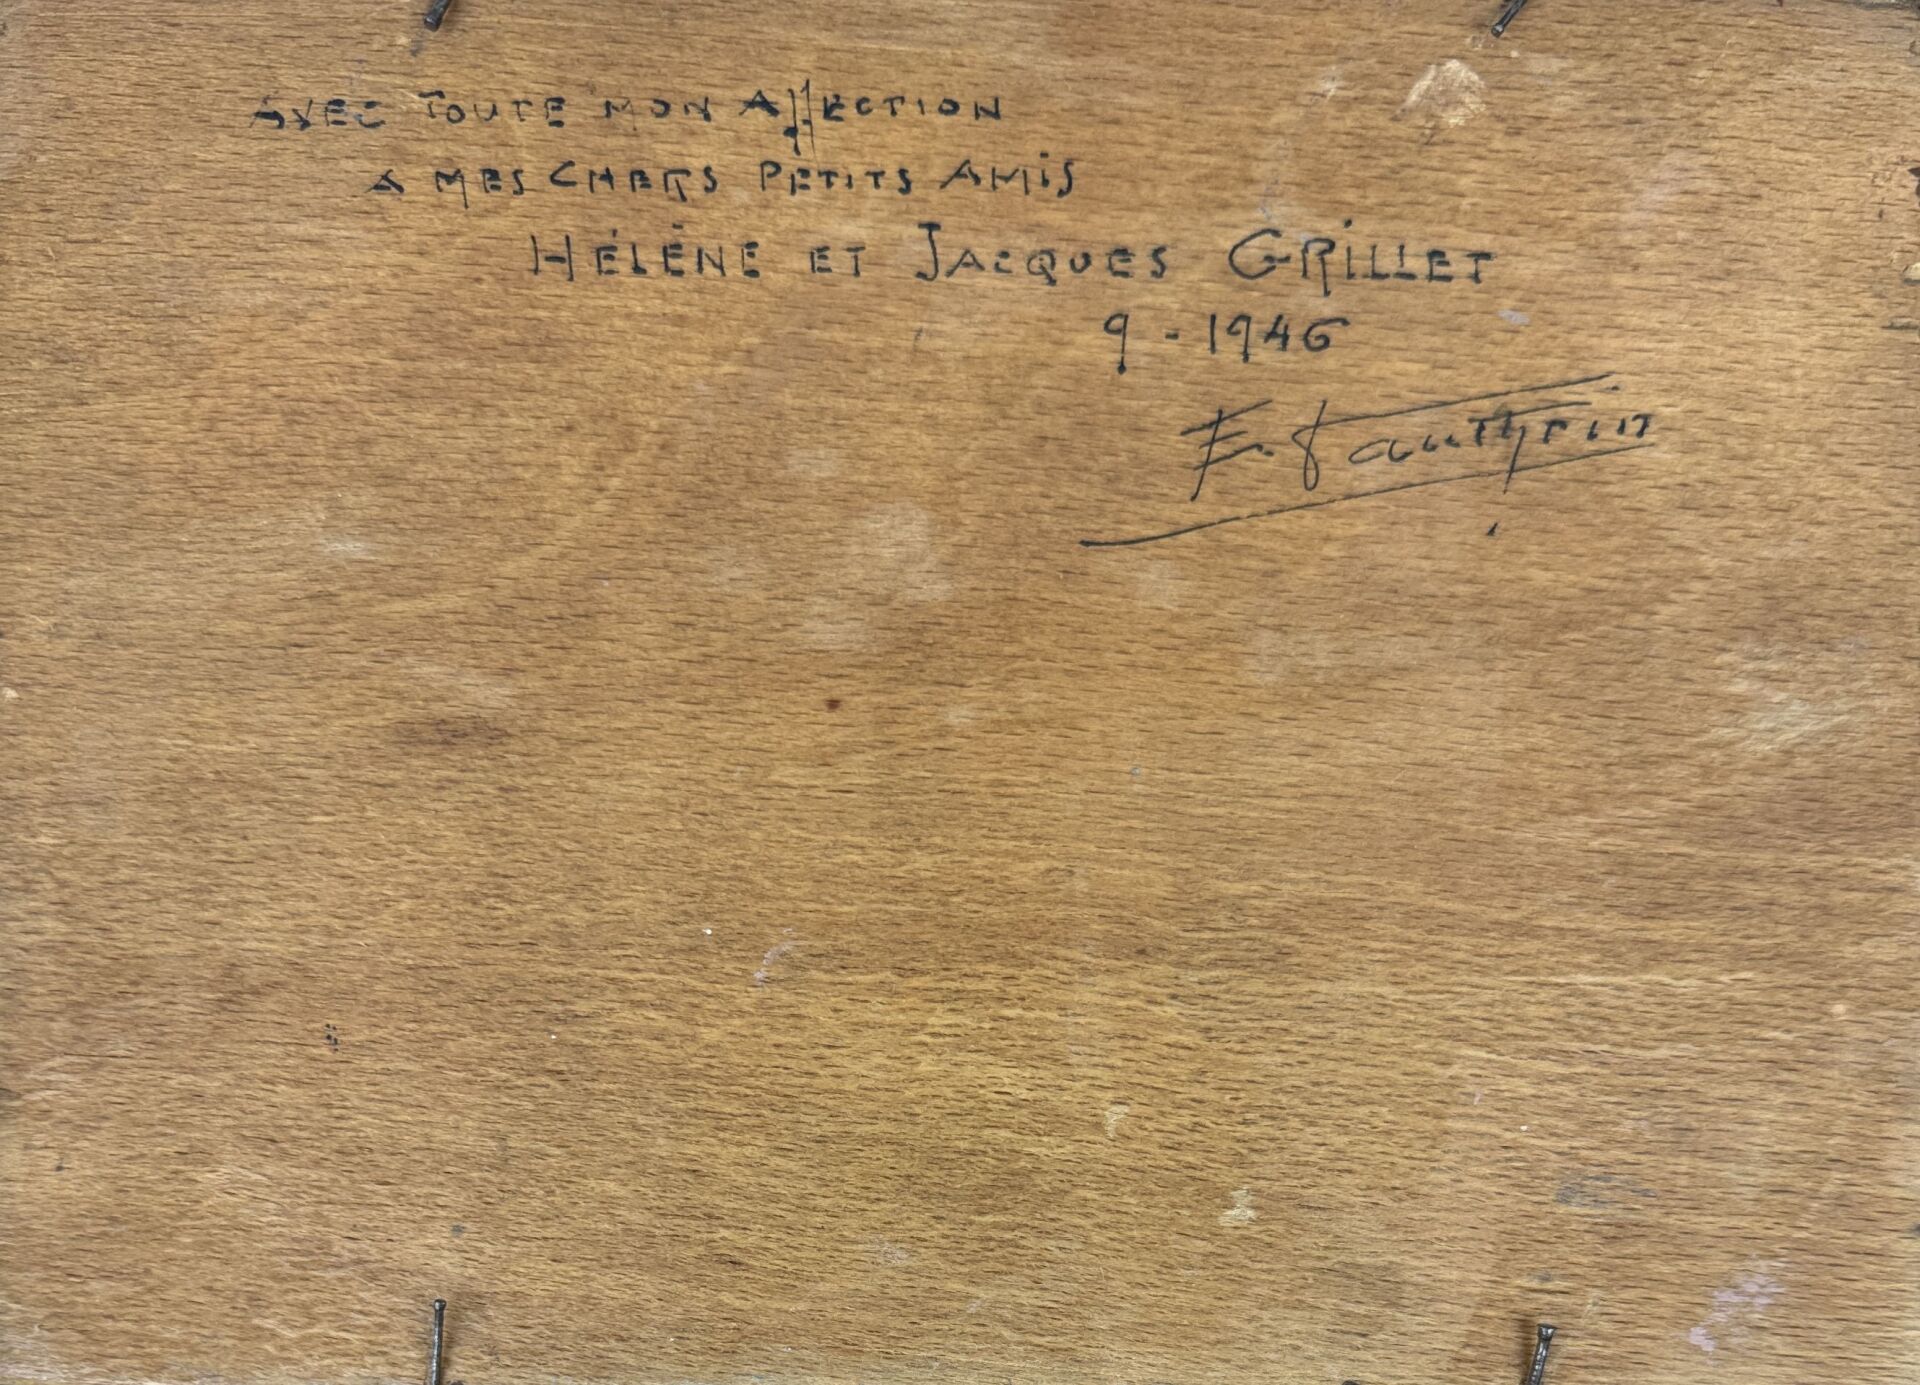 AVEC TOUTE MON AffECTION
A MES CHERS PETITS AMIS
HÉLÈNE ET JACQUES GRILLET
9 - 1946
E.